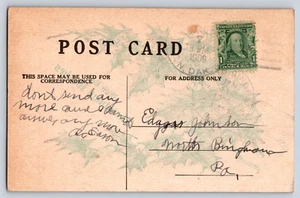 POST CARD
THIS SPACE MAY BE USED FOR
CORRESPONDENCE.
FOR ADDRESS ONLY
dont send any
more and I
answer any more
Edgar Johnson
North Bingham
Pa,